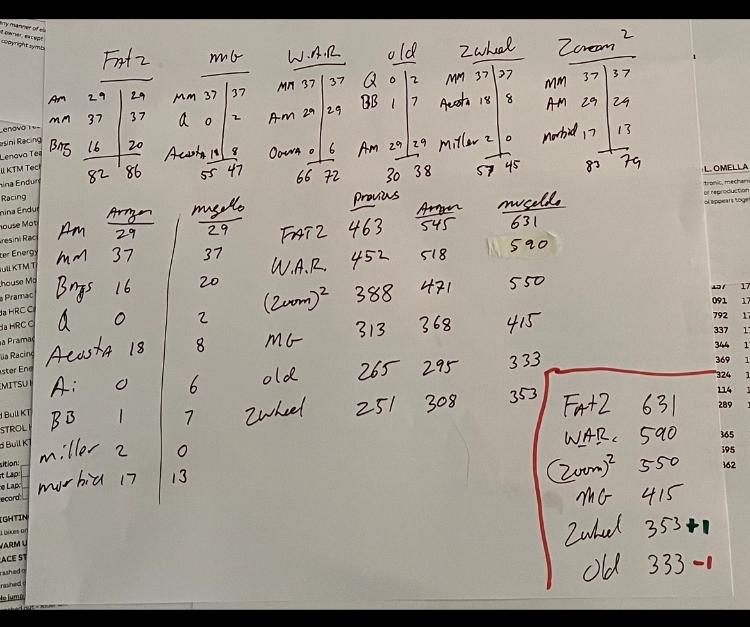 Fat2 MG W.A.R old 2wheel Zoom²
Am 29 29 MM 37 37 MM 37 37 Q 0 2 MM 37 37 MM 37 37
mm 37 37 Q 0 2 Am 29 29 BB 1 7 Acosta 18 8 AM 29 29
Bngs 16 20 Acosta 18 8 0 6 Am 29 29 Miller 2 0 Morbid 17 13
82 86 55 47 66 72 30 38 57 45 83 79
Aragon mugello
Am 29 29
mm 37 37
Bngs 16 20
Q 0 2
Acosta 18 8
Ai 0 6
BB 1 7
miller 2 0
morbid 17 13
previous Aragon mugello
FAT2 463 545 631
W.A.R. 452 518 590
(Zoom)² 388 471 550
MG 313 368 415
old 265 295 333
2wheel 251 308 353
FAT2 631
W.A.R. 590
(Zoom)² 550
MG 415
2wheel 353 +1
Old 333 -1
any manner of
copyright
Racing
L. OMELLA
091 17
792 17
337 1
344 1
369 1
324 1
114 1
289 1
365
595
362